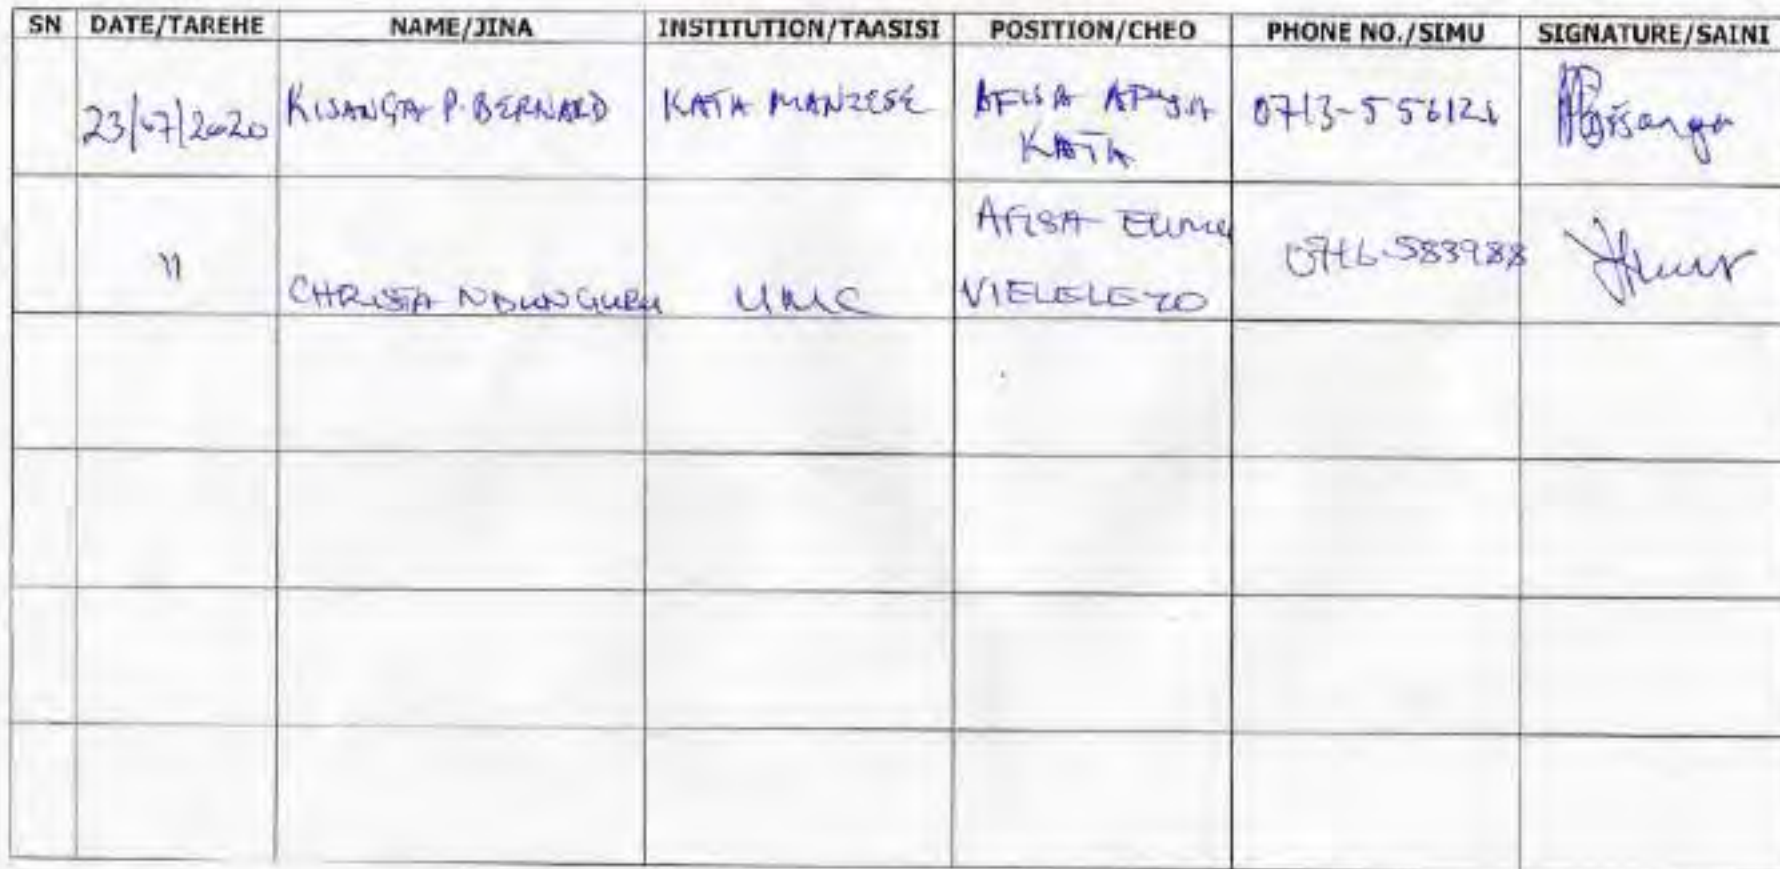 SN DATE/TAREHE NAME/JINA INSTITUTION/TAASISI POSITION/CHEO PHONE NO./SIMU SIGNATURE/SAINI
23/07/2020 KISANGA P. BERNARD KATA MANZESE AFISA AFYA 0713-556126
KATA
AFISA ELIMU
" CHRISTA NDUNGURU UMC VIELELEZO 0716-583988